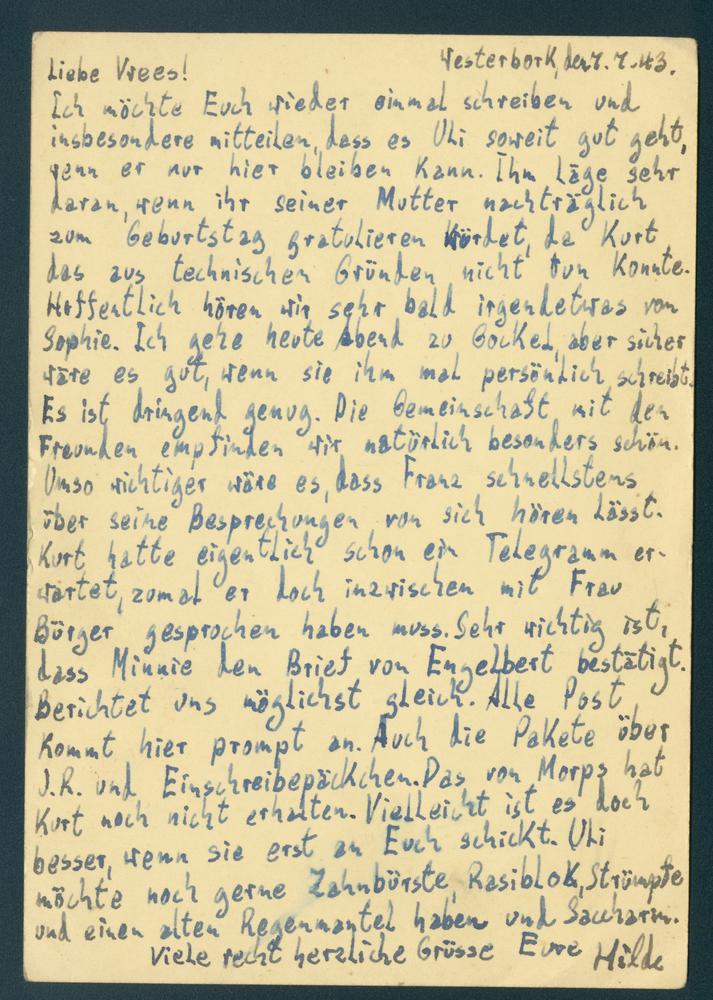 Westerbork, den 7.7.43.
Liebe Vrees!
Ich möchte Euch wieder einmal schreiben und
insbesondere mitteilen, dass es Uli soweit gut geht,
wenn er nur hier bleiben kann. Ihm läge sehr
daran, wenn ihr seiner Mutter nachträglich
zum Geburtstag gratulieren würdet, da Kurt
das aus technischen Gründen nicht tun konnte.
Hoffentlich hören wir sehr bald irgendetwas von
Sophie. Ich gehe heute Abend zu Gockel, aber sicher
wäre es gut, wenn sie ihm mal persönlich schreibt.
Es ist dringend genug. Die Gemeinschaft mit den
Freunden empfinden wir natürlich besonders schön.
Umso wichtiger wäre es, dass Franz schnellstens
über seine Besprechungen von sich hören lässt.
Kurt hatte eigentlich schon ein Telegramm er-
wartet, zumal er doch inzwischen mit Frau
Bürger gesprochen haben muss. Sehr wichtig ist,
dass Minnie den Brief von Engelbert bestätigt.
Berichtet uns möglichst gleich. Alle Post
kommt hier prompt an. Auch die Pakete über
J.R. und Einschreibepäckchen. Das von Morps hat
Kurt noch nicht erhalten. Vielleicht ist es doch
besser, wenn sie erst an Euch schickt. Uli
möchte noch gerne Zahnbürste, Rasiblok, Strümpfe
und einen alten Regenmantel haben und Saccharin.
Viele recht herzliche Grüsse Eure Hilde